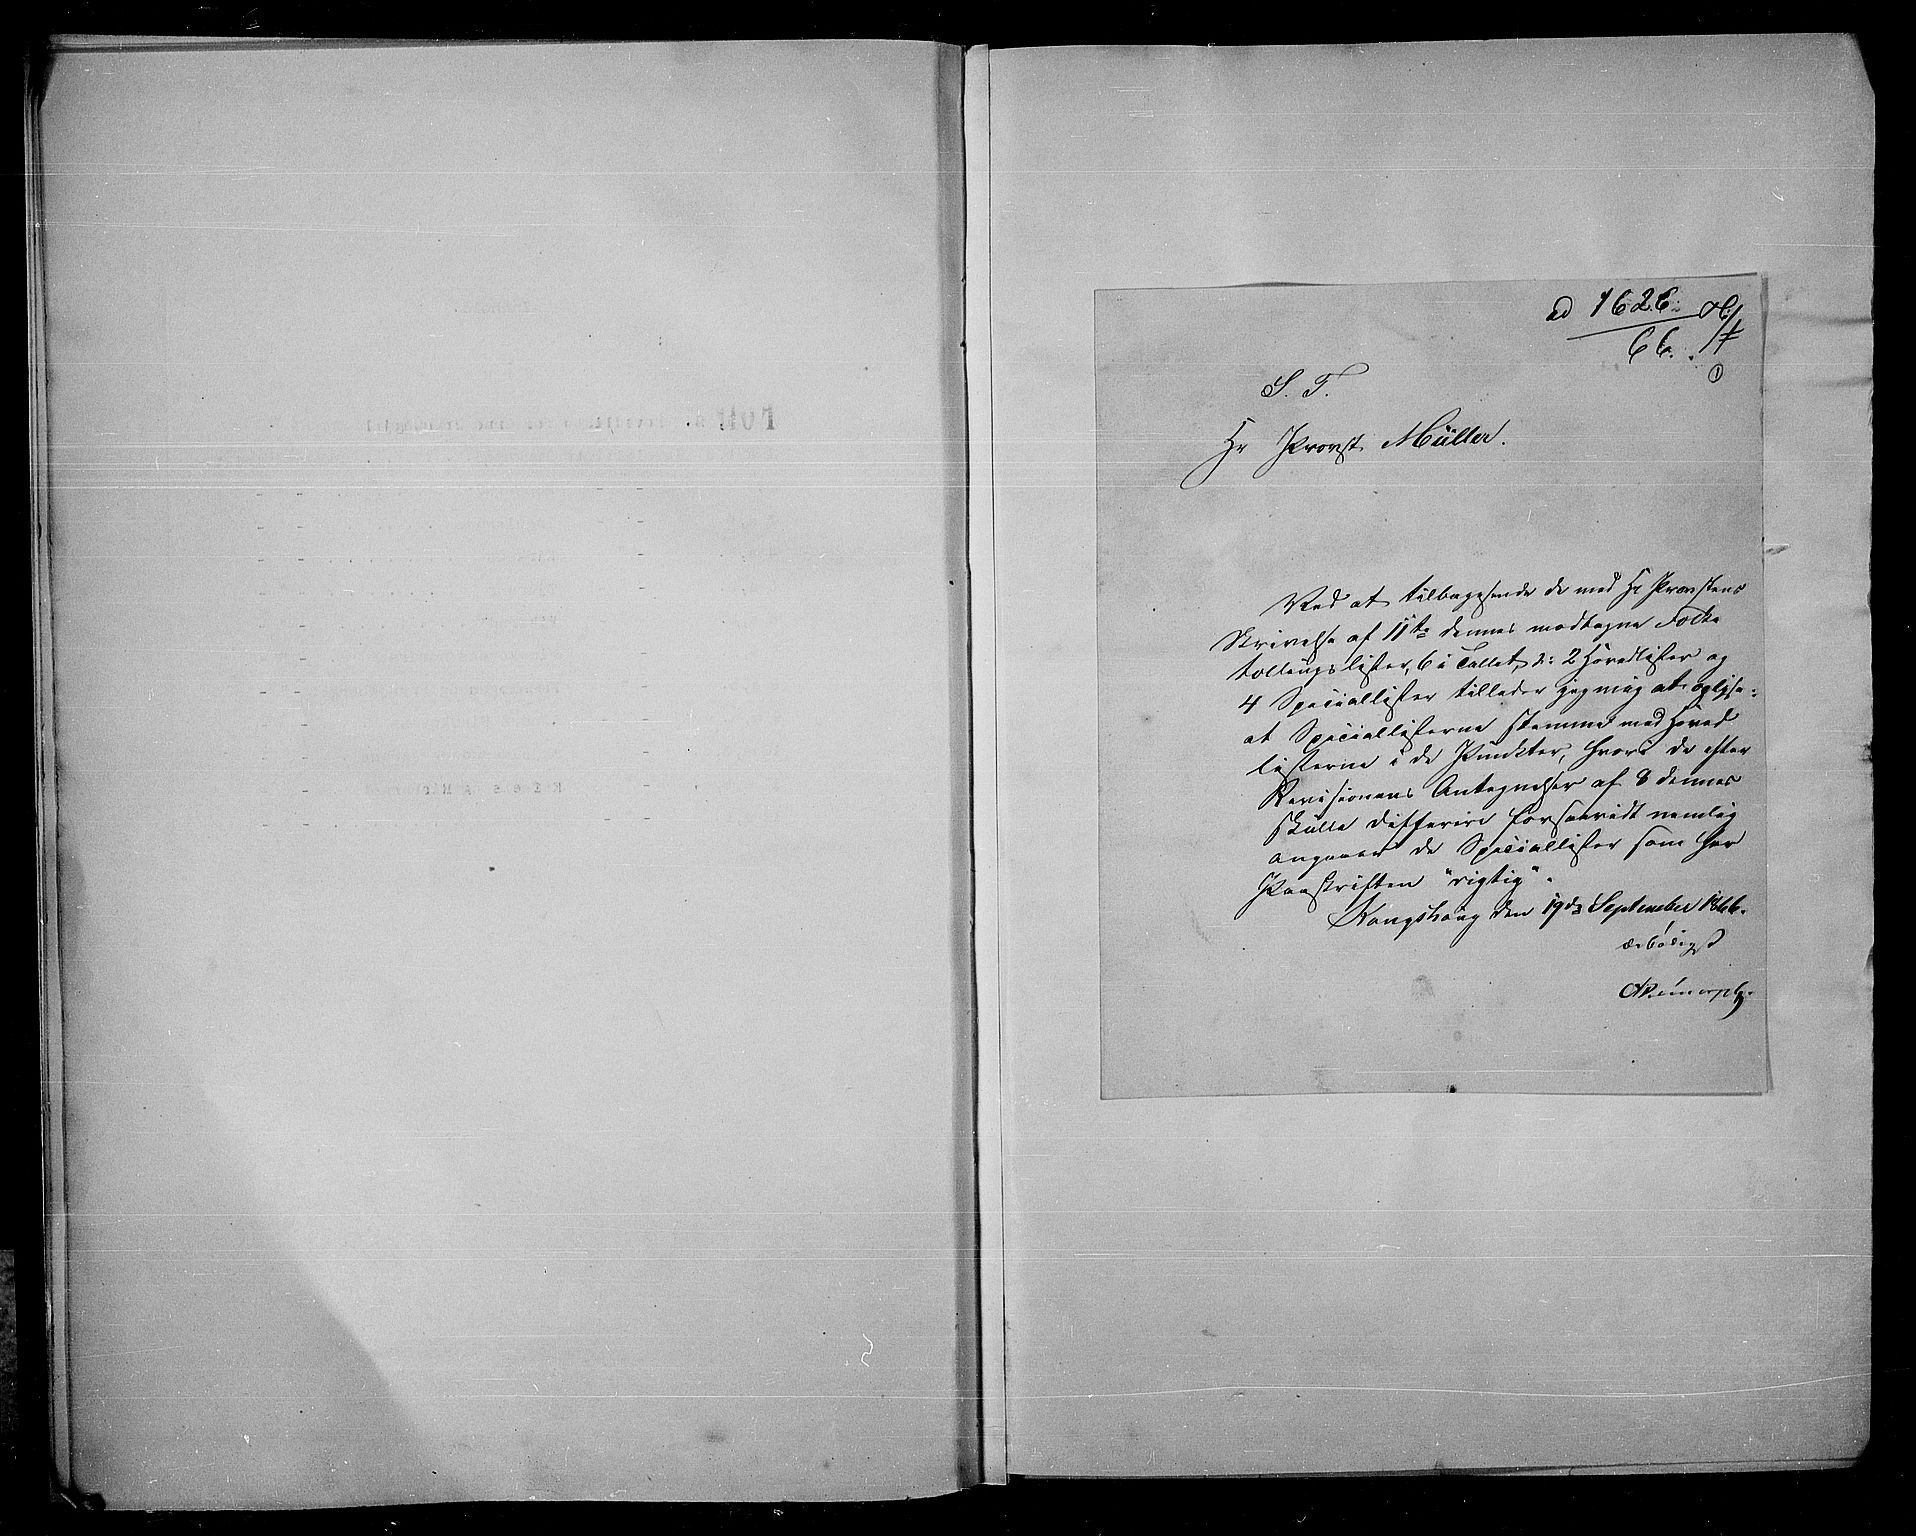 ad 1626
66.
1
S. T.
Hr Provst Müller.
Ved at tilbagesende de med Hr Provstens
Skrivelse af 11te dennes modtagne Folke
tællingslister, 6 i Tallet, d: 2 Hovedlister og
4 Speciallister tillader jeg mig at oplyse:
at Speciallisterne stemme med Hoved
listerne i de Punkter, hvori de efter
Revisionens Antegnelser af 8 dennes
skulle differere forsaavidt nemlig
angaaer de Speciallister som har
Paaskriften "rigtig".
Kongsberg den 19de September 1866.
ærbødigst